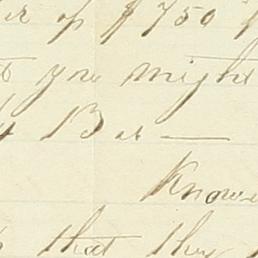 of $750
you might
Bu—
Know
that they